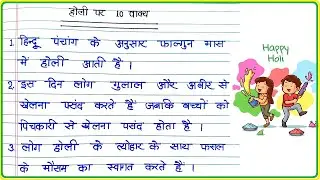 होली पर 10 वाक्य
1. हिन्दू पंचांग के अनुसार फाल्गुन मास
में होली आती है।
2. इस दिन लोग गुलाल और अबीर से
खेलना पसंद करते हैं जबकि बच्चों को
पिचकारी से खेलना पसंद होता है।
3. लोग होली के त्योहार के साथ फसल
के मौसम का स्वागत करते हैं।
Happy
Holi